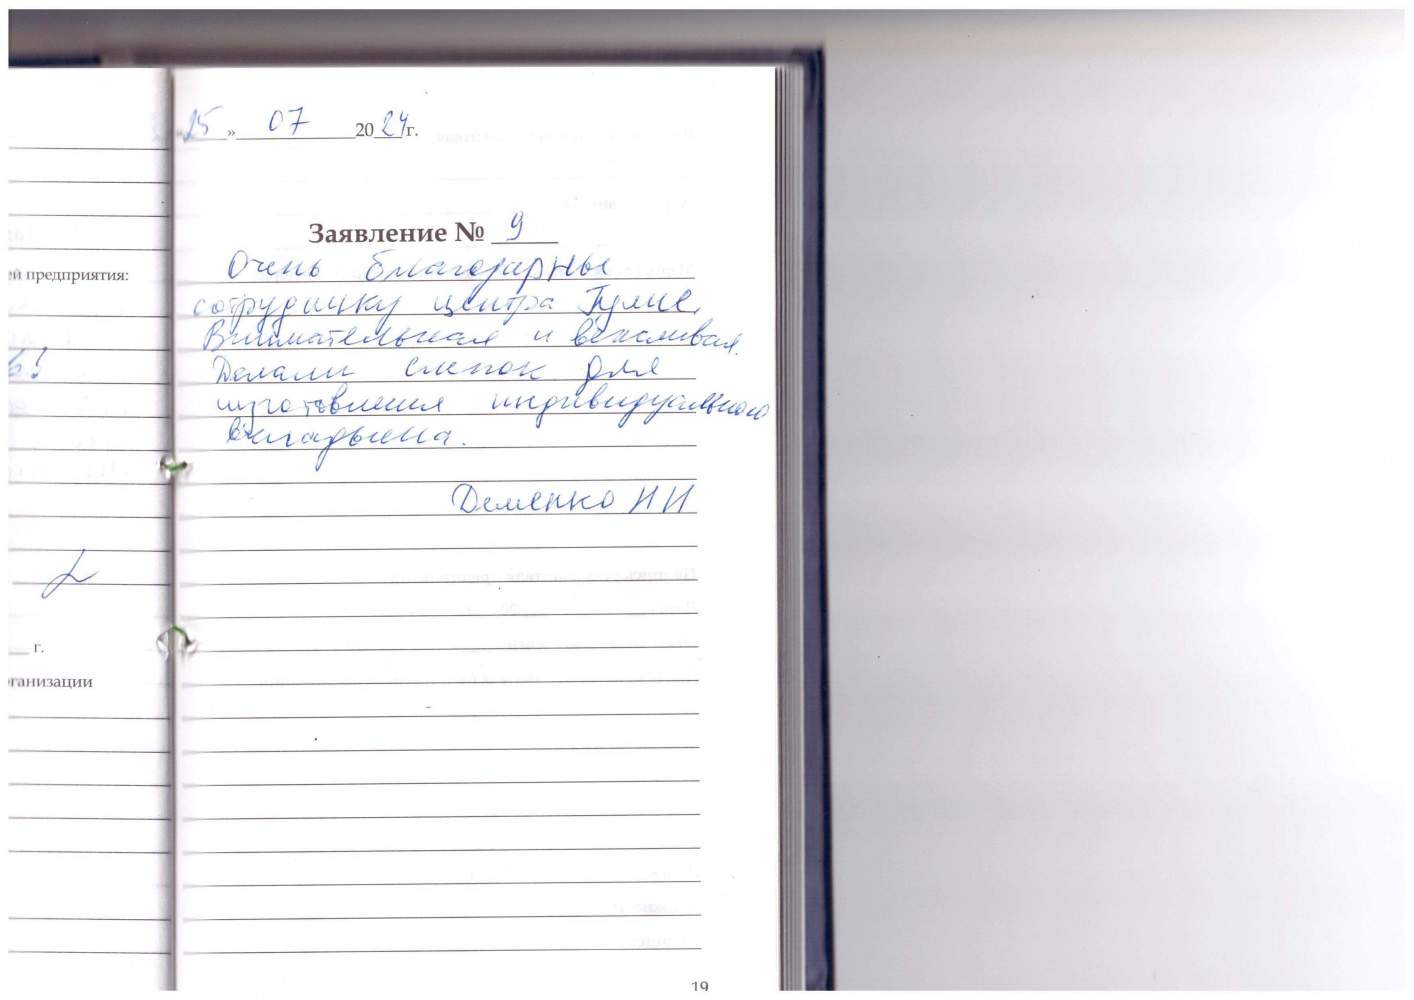 «25» 07 2024г.
Заявление № 9
ей предприятия:
Очень благодарны
сотруднику центра Гулие.
Внимательная и вежливая.
ь!
Делали слепок для
изготовления индивидуального
вкладыша.
Деменко И И
г.
рганизации
19